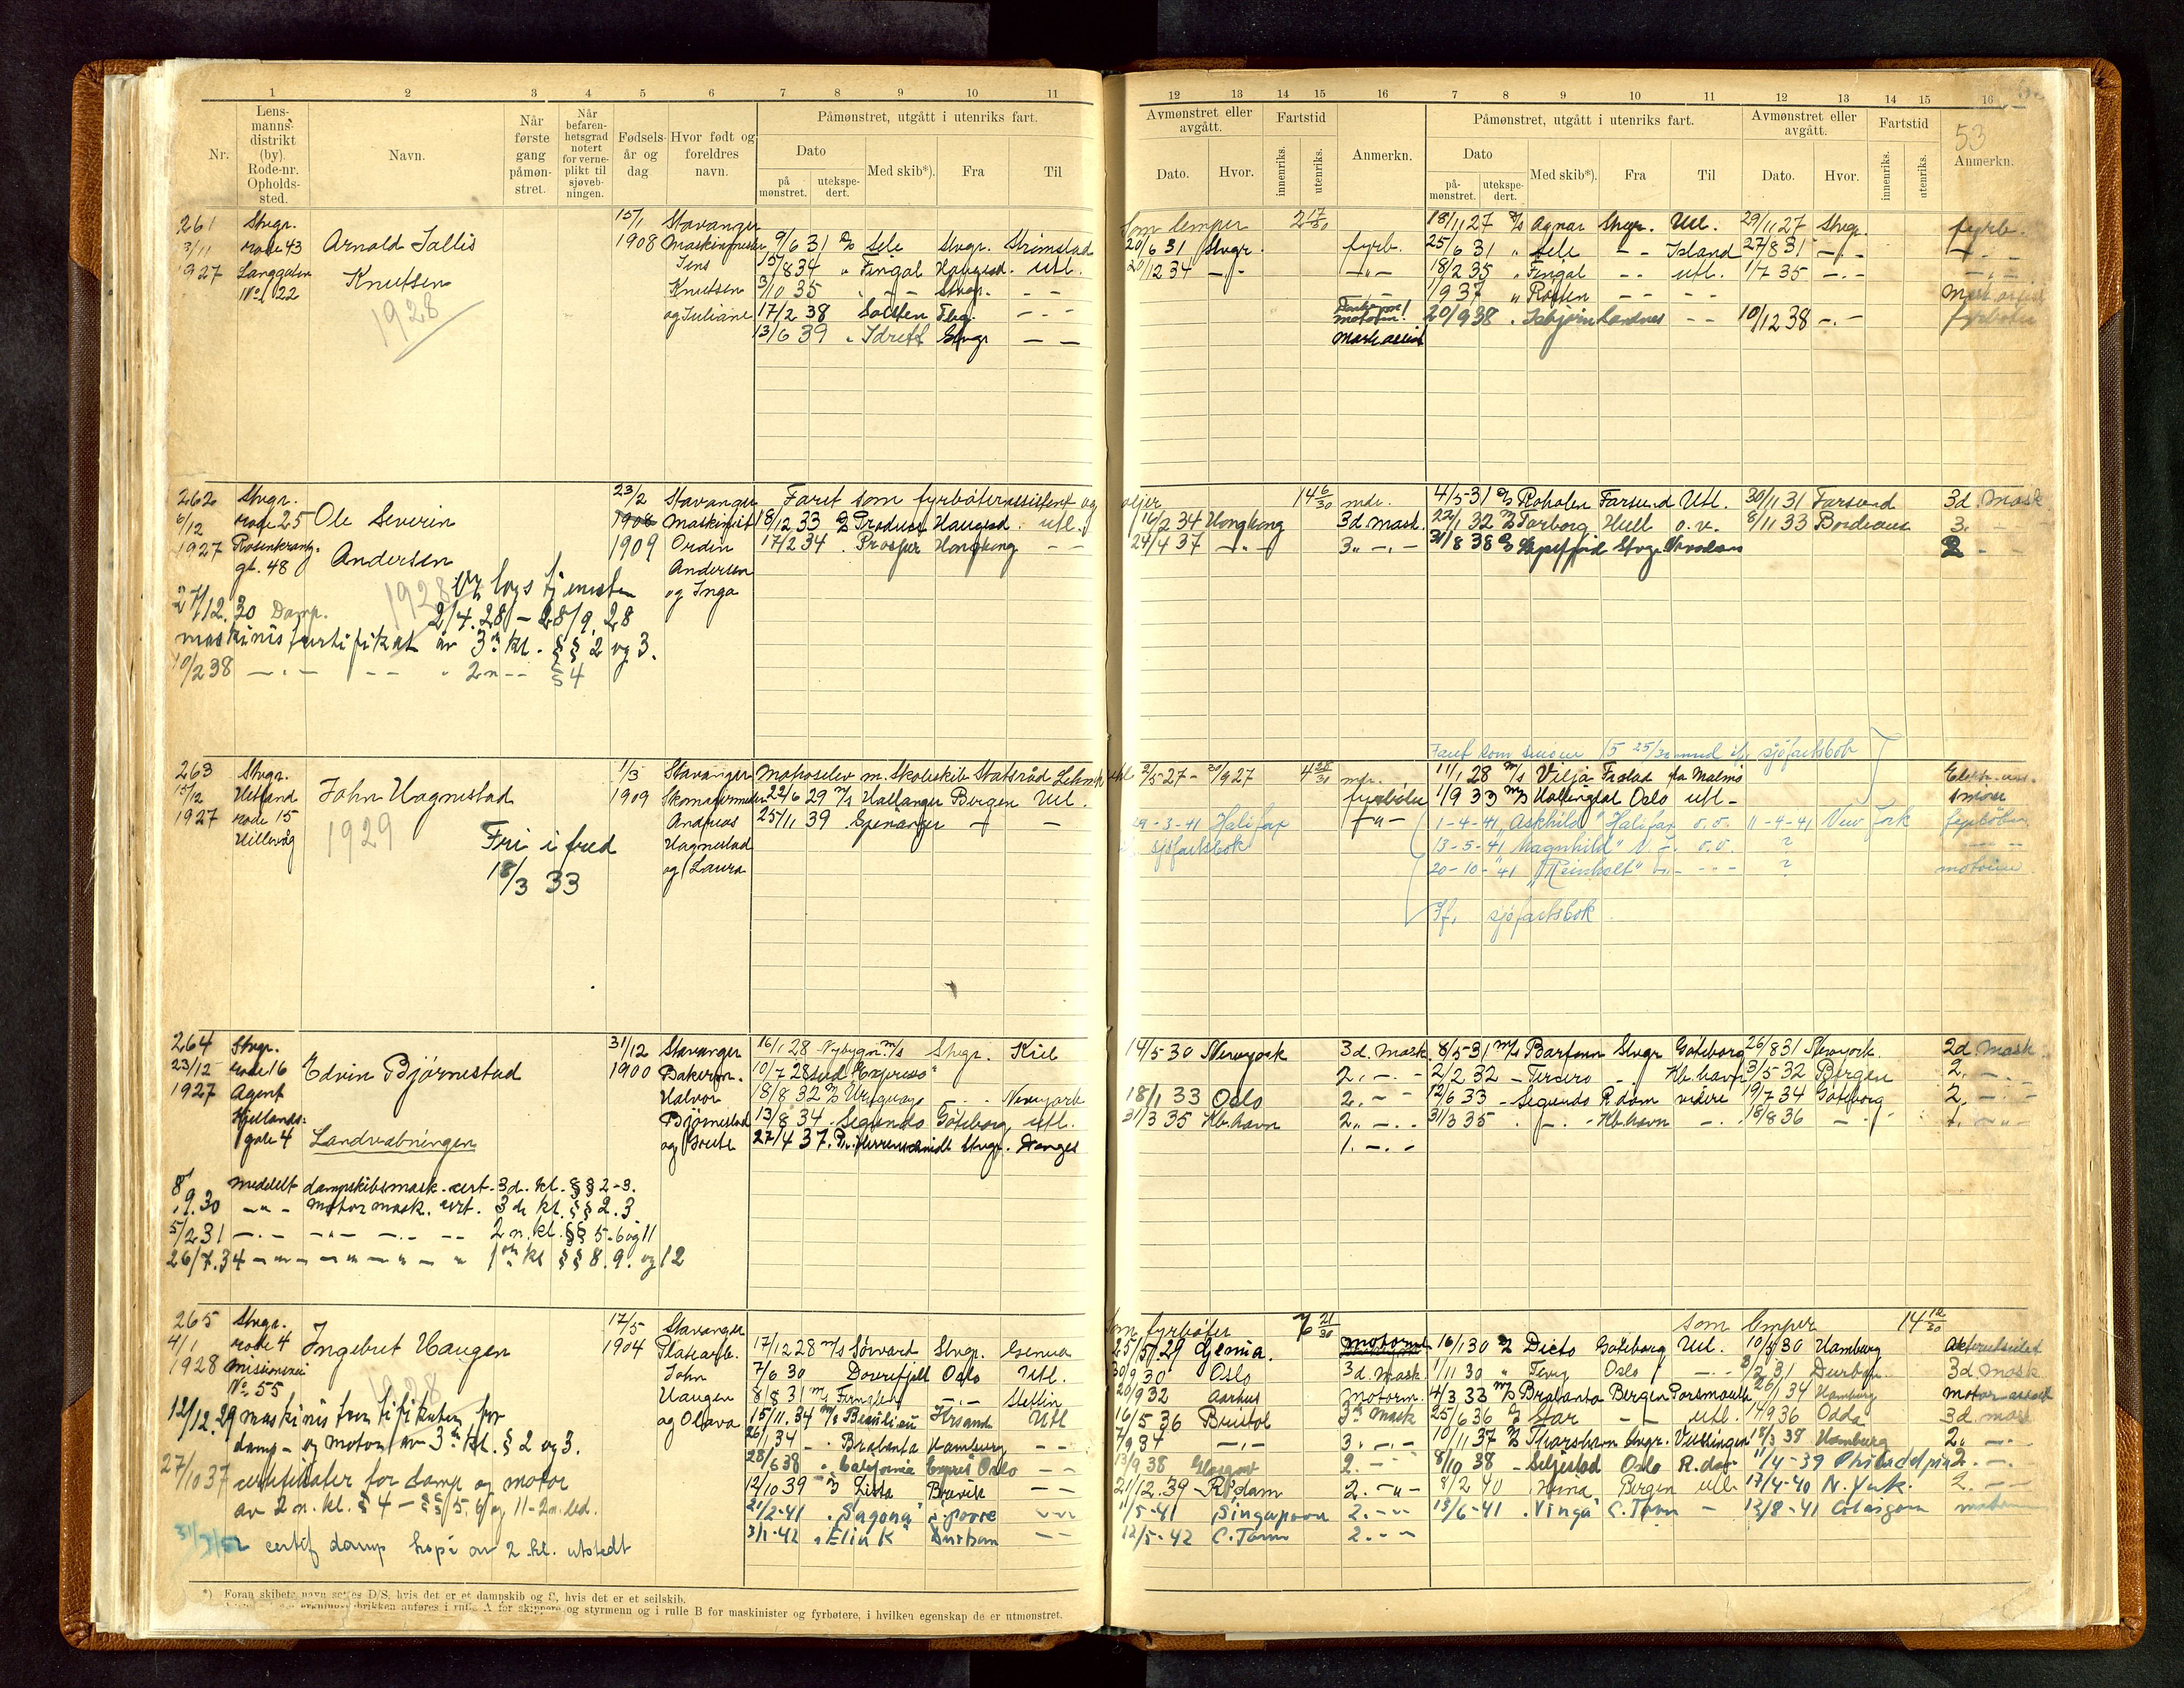 1 2 3 4 5 6 7 8 9 10 11
Nr. Lensmanns-distrikt (by). Rode-nr. Opholds-sted. Navn. Når første gang påmøn-stret. Når befaren-hetsgrad notert for verne-plikt til sjøveb-ningen. Fødsels-år og dag Hvor født og foreldres navn. Påmønstret, utgått i utenriks fart.
Dato på mønstret. utekspe-dert. Med skib*). Fra Til
261 Stvgr. 15/1 Stavanger
3/11 rode 43 Arnold Sallis 1908 Maskinpusser 9/6 31 Sele Stvgr. Strömstad
1927 Langgaten Knutsen Jens /8 34 " Fingal Haugesd. Utl.
No 22 1928 Knutsen 3/10 35 - - Stvgr. - -
og Juliane 17/2 38 Solsten Tbg. - - -
13/6 39 " Idrett Stvgr - -
262 Stvgr. 23/2 Stavanger Faret som fyrbøterassistent og
6/12 rode 25 Ole Severin 1908 Maskinist 18/12 33 Produce Haugesd. utl.
1927 Rosenkrantz- Andersen 1909 Ordin 17/2 34 . Prosper Hongkong - -
gt. 48 Andersen
1928 og Inga
27/12.30 Damp- 2/4.28 - 28/9.28
maskinistsertifikat av 3. kl. §§ 2 og 3.
10/2 38 - " - - - " 2n - - § 4
263 Stvgr. 1/3 Stavanger Matroselev m. Skoleskib Statsråd Lehmkuhl
15/12 Hetland John Hagnestad 1909 Skomakermester 22/6 29 M/s Hallanger Bergen Utl.
1927 rode 15 1929 Andreas 25/11 39 Spenanger - -
Hillevåg Fri i fred Hagnestad
18/3 33 og Laura
264 Stvgr. 31/12 Stavanger 16/1 28 Nybygn. M/s Stvgr. Kiel
23/12 rode 16 Edvin Bjørnestad 1900 Bakerm. 10/7 28 sud Expresso"
1927 Agent Halvor 18/8 32 Uruguay - . - Newyork
Kjellands- Bjørnestad 13/8 34 . Segundo Göteborg utl.
gate 4 Landvabningen og Grete 27/4 37. Stvgr. Danzig
8/ Meddelt dampskibsmask. cert. 3d. kl. §§ 2-3.
.9.30 - " - Motor mask. cert. 3 de kl. §§ 2.3
5/2 31 - " - - " - - " - - - 2n. kl. §§ 5-6 og 11
26/7.34 - " - - " - " - " 1ste kl §§ 8.9. og 12
265 Stvgr. 17/5 Stavanger
4/1 rode 4 Ingebret Haugen 1904 Platearb. 17/12 28 M/s Sørvard Stvgr. Genua
1928 Misionsvei John 7/6 30 Dovrefjell Oslo Utl.
No 55 1928 Haugen 8/8 31 M/s Fernglen - . - Stettin
12/12.29 maskinistsertifikater for og Olava 15/11.34 M/s Beaulieu Krsand Utl
damp- og motor av 3. kl. § 2 og 3. 26/1 34 - . Brabanta Hamburg - -
27/10 37 certifikater for damp og motor 28/6 38 " California Expres Oslo - -
av 2n. kl. § 4 - §§ 5, 6 og 11 - 2n. led. 12/10 39 Lista Brevik - -
21/2-41 . Sagona S'pore - -
31/7/52 certif damp kopi av 2. kl. utstedt 3/1-42 "Elin K" Durban - -
*) Foran skibets navn settes D/S, hvis det er et dampskib og S, hvis det er et seilskib.
anføres i rulle A for skippere og styrmenn og i rulle B for maskinister og fyrbøtere, i hvilken egenskap de er utmønstret.
12 13 14 15 16 7 8 9 10 11 12 13 14 15 16
53
Avmønstret eller avgått. Fartstid Anmerkn. Påmønstret, utgått i utenriks fart. Avmønstret eller avgått. Fartstid Anmerkn.
Dato. Hvor. innenriks. utenriks. Dato på-mønstret. utekspe-dert. Med skib*). Fra Til Dato. Hvor. innenriks. utenriks.
Som lemper 2 17/30 18/11 27 Agnar Stvgr. Utl. 29/11 27 Stvgr. fyrb.
20/6 31 Stvgr. fyrb. 25/6 31 " Sele - - Island 27/8 31 - " - - " -
20/12 34 - " - - " - 18/2 35 " Fingal - - utl. 1/7 35 - . - - " -
1/9 37 " Røsten - - - - Mask. assist
20/9 38 . Isbjørn - - 10/12 38 - . - fyrbøter
Mask. assist
oljer 14 6/30 mdr. 4/5-31 Roholm Farsund Utl. 30/11 31 Farsund 3d. Mask
16/2 34 Hongkong 3d. Mask. 22/1 32 Farborg Hull o.v. 8/11 33 Bordeaux 3. - -
24/4 37 - " - 3. - . - 31/8 38 Stvgr. 2 - -
Faret som 15 25/30 mnd. if. sjøfartsbok
2/5-27 - /9 27 4 28/31 mdr. 11/1 28 M/s Vilja Frstad fra Malmø
fyrbøter 1/9 33 M/S Hallingdal Oslo utl - smører
29-3-41 Halifax - " - 1-4-41 "Askhild" Halifax o.v. 11-4-41 New York fyrbøter
sjøfartsbok 13-5-41 "Magnhild" N - . o.v. ? - - -
20-10-41 "Reinholt" - - - - ? motorm.
If. sjøfartsbok.
14/5 30 Newyork 3d. Mask 8/5-31 M/s Barfonn Stvgr Göteborg 26/8 31 Newyork 2d. Mask
2. - . - 2/2 32 - Tercero - . Kb.havn 3/5 32 Bergen 2. - .
18/1 33 Oslo 2. - - 12/6 33 - Segundo R.dam videre 19/7 34 Göteborg 2. - . -
31/3 35 Kb.havn 2. - . - 31/3 35 . - . - Kb.havn - . 18/8 36 - . 1. - " -
1. - . -
Som fyrbøter 7 21/30 som lemper 14 12/30
25/5/29 Genua. Motorm 16/1 30 Dicto Göteborg Utl. 10/5 30 Hamburg
30/9 30 Oslo 3d. Mask 1/11 30 " Terry Oslo - . - 2/2 31 Durban 3d. Mask
20/9 32 Aarhus Motorm. 4/3 33 M/s Brabanta Bergen Porsmouth 26/1 34 Hamburg motor-assist
16/5 36 Bristol 3d. Mask 25/6 36 Star - - utl. 14/9 36 Odda 3d. mask
7/9 34 - . - 3. - . - 10/11 37 Thorshavn Stvgr. Vlissingen 18/3 38 Hamburg 2. - .
13/9 38 Glasgow 2. - . - 8/10 38 - Seljestad Oslo R.dam 11/4-39 Philadelpia 2. - . -
21/12.39 R'dam 2. - " - 8/2 40 Bergen utl. 17/4-40 N. York. 2. - -
11/5-41 Singapore 2. - - - 13/6-41 . Vinga C. Town - 12/8-41 Glasgow
12/5-42 C. Town 2. - - -